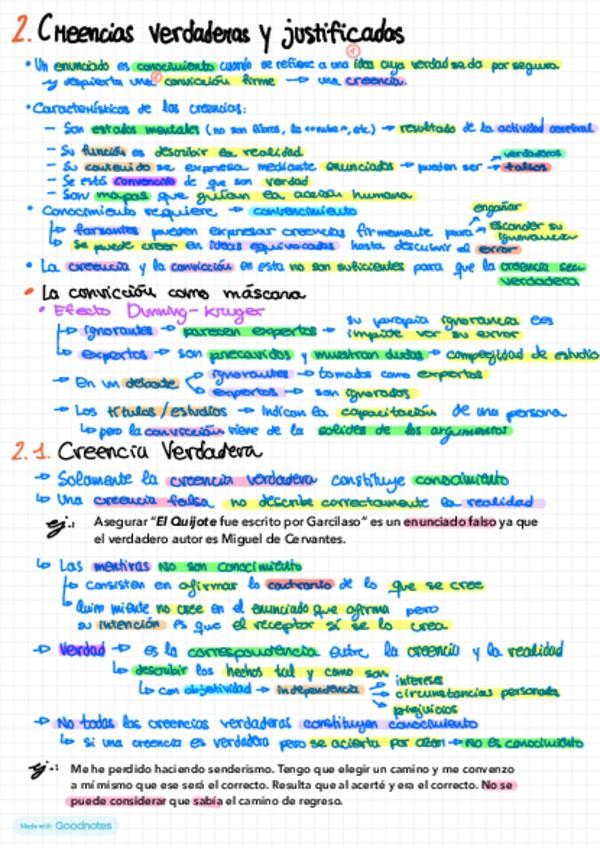 2. Creencias verdaderas y justificadas
• Un enunciado es conocimiento cuando se refiere a una ① idea cuya verdad se da por segura
y despierta una ② convicción firme → una creencia.
• Características de las creencias:
– Son estados mentales (no son libros, la "nube", etc) → resultado de la actividad cerebral
– Su función es describir la realidad
– Su contenido se expresa mediante enunciados → pueden ser → verdaderos
→ falsos
– Se está convencido de que son verdad
– Son mapas que guían la acción humana
• Conocimiento requiere → convencimiento
↳ farsantes pueden expresar creencias firmemente para → engañar
→ esconder su ignorancia
↳ Se puede creer en ideas equivocadas hasta descubrir el error
• La creencia y la convicción en esta no son suficientes para que la creencia sea
verdadera
• La convicción como máscara
• Efecto Dunning-Kruger
↳ ignorantes → parecen expertos → su propia ignorancia les
impide ver su error
↳ expertos → son precavidos y muestran dudas → complejidad de estudio
→ En un debate ignorantes → tomados como expertos
expertos → son ignorados
→ Los títulos/estudios → indican la capacitación de una persona
↳ pero la convicción viene de la solidez de los argumentos
2.1. Creencia Verdadera
→ Solamente la creencia verdadera constituye conocimiento
↳ Una creencia falsa no describe correctamente la realidad
ej.: Asegurar "El Quijote fue escrito por Garcilaso" es un enunciado falso ya que
el verdadero autor es Miguel de Cervantes.
↳ Las mentiras no son conocimiento
↳ Consisten en afirmar lo contrario de lo que se cree
↳ Quien miente no cree en el enunciado que afirma pero
su intención es que el receptor sí se lo crea
→ Verdad → es la correspondencia entre la creencia y la realidad
↳ describir los hechos tal y como son
↳ con objetividad → independencia → intereses
→ circunstancias personales
→ prejuicios
→ No todas las creencias verdaderas constituyen conocimiento
↳ Si una creencia es verdadera pero se acierta por azar → no es conocimiento
ej.: Me he perdido haciendo senderismo. Tengo que elegir un camino y me convenzo
a mí mismo que ese será el correcto. Resulta que al acerté y era el correcto. No se
puede considerar que sabía el camino de regreso.
Made with Goodnotes